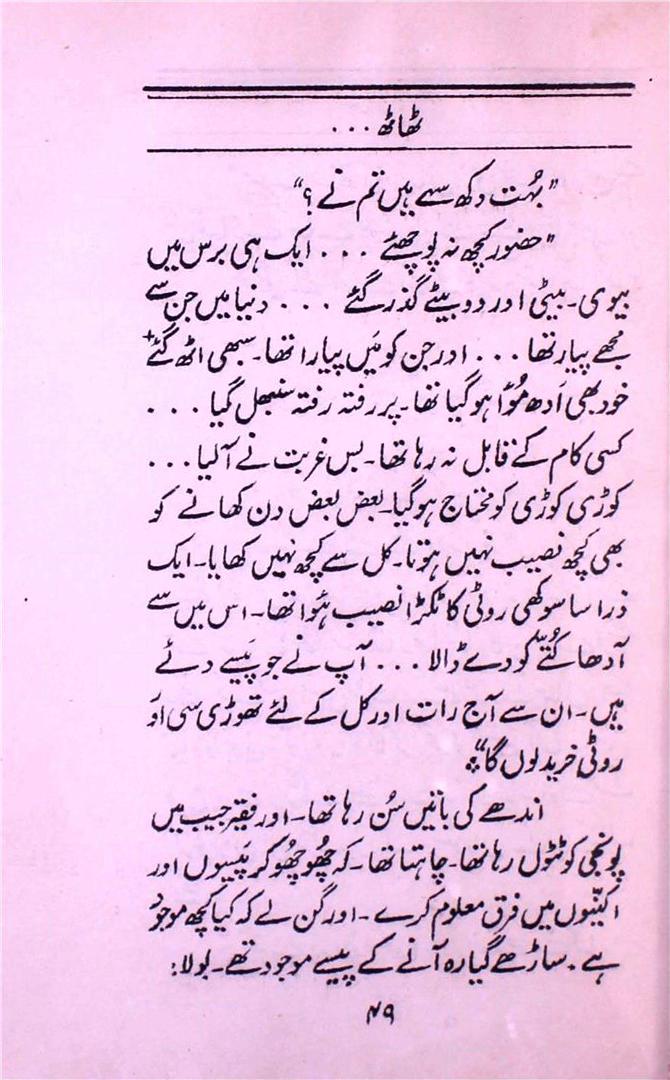 ٹھاٹھ ...
"بہُت دکھ سہے ہیں تم نے؟"
"حضور کچھ نہ پوچھئے ... ایک ہی برس میں
بیوی۔ بیٹی اور دو بیٹے گذر گئے ... دنیا میں جن سے
مجھے پیار تھا ... اور جن کو مَیں پیارا تھا۔ سبھی اٹھ گئے
خود بھی اَدھ مُؤا ہو گیا تھا۔ پر رفتہ رفتہ سنبھل گیا ...
کسی کام کے قابل نہ رہا تھا۔ بس غربت نے آ لیا ...
کوڑی کوڑی کو محتاج ہو گیا۔ بعض بعض دن کھانے کو
بھی کچھ نصیب نہیں ہوتا۔ کل سے کچھ نہیں کھایا۔ ایک
ذرا سا سوکھی روٹی کا ٹکڑا نصیب ہئوا تھا۔ اس میں سے
آدھا کُتّے کو دے ڈالا ... آپ نے جو پَیسے دئے
ہیں۔ ان سے آج رات اور کل کے لئے تھوڑی سی اَور
روٹی خرید لوں گا"
اندھے کی باتیں سُن رہا تھا۔ اور فقیر جیب میں
پونجی کو ٹٹول رہا تھا۔ چاہتا تھا۔ کہ چھُو چھُو کر پَیسوں اور
اکنّیوں میں فرق معلوم کرے۔ اور گن لے کہ کیا کچھ موجود
ہے۔ ساڑھے گیارہ آنے کے پیسے موجود تھے۔ بولا:
۴۹